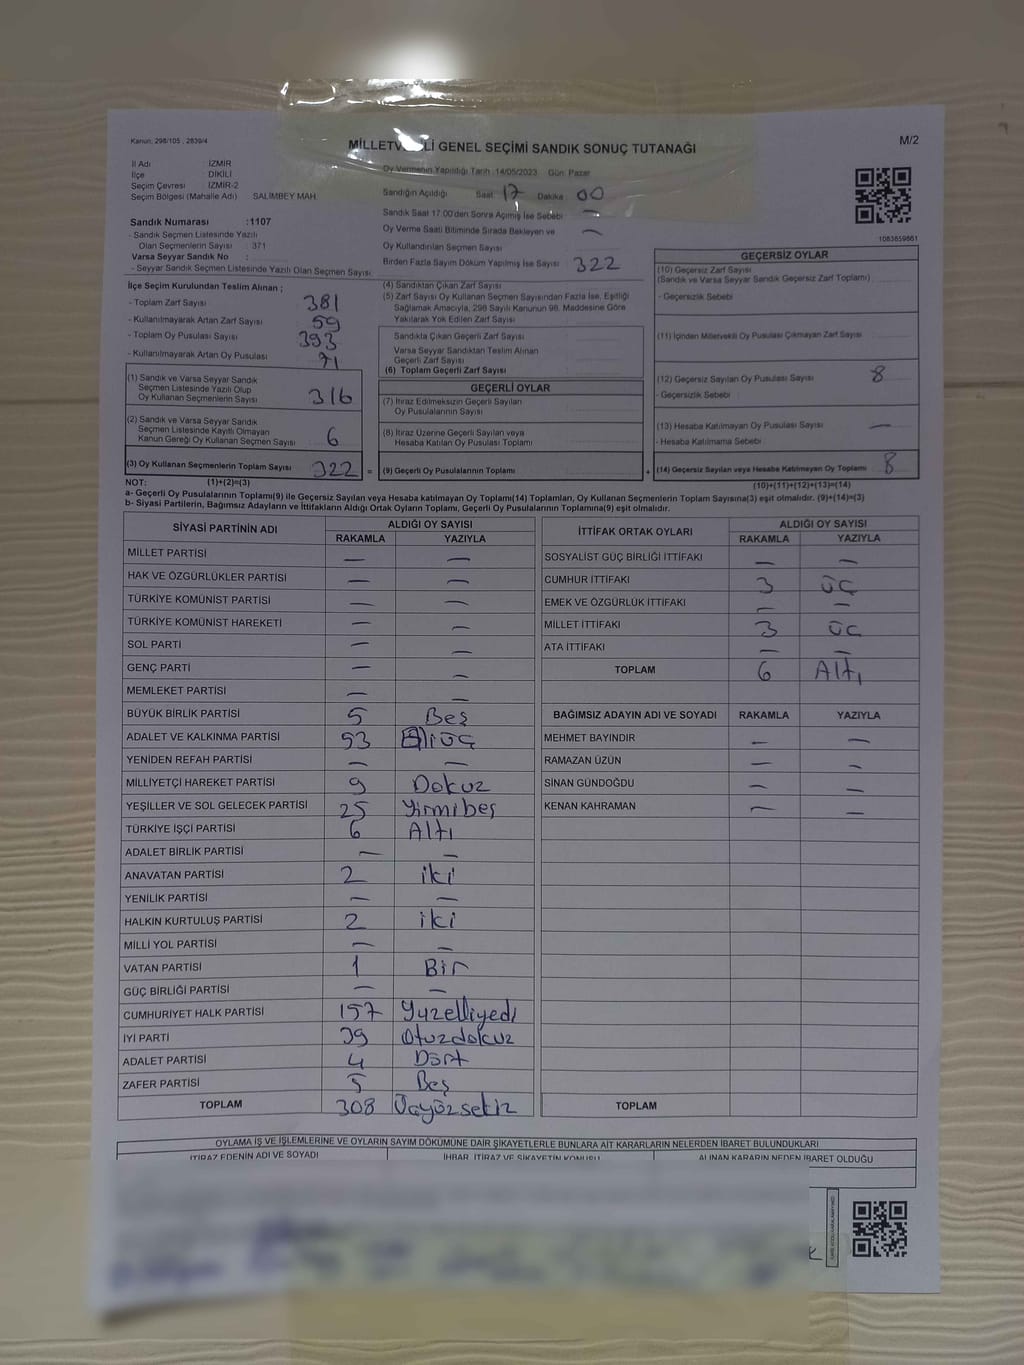 Kanun, 298/105 , 2839/4
M/2
MİLLETV Lİ GENEL SEÇİMİ SANDIK SONUÇ TUTANAĞI
İl Adı : İZMİR
İlçe : DİKİLİ
Seçim Çevresi : İZMİR-2
Seçim Bölgesi (Mahalle Adı) SALİMBEY MAH.
Oy Vermenin Yapıldığı Tarih :14/05/2023 Gün: Pazar
Sandığın Açıldığı Saat 17 Dakika 00
Sandık Saat 17:00'den Sonra Açılmış İse Sebebi —
Oy Verme Saati Bitiminde Sırada Bekleyen ve
Oy Kullandırılan Seçmen Sayısı —
Birden Fazla Sayım Döküm Yapılmış İse Sayısı 322
Sandık Numarası :1107
- Sandık Seçmen Listesinde Yazılı
Olan Seçmenlerin Sayısı : 371
Varsa Seyyar Sandık No :
- Seyyar Sandık Seçmen Listesinde Yazılı Olan Seçmen Sayısı:
1083659861
İlçe Seçim Kurulundan Teslim Alınan ;
- Toplam Zarf Sayısı 381
- Kullanılmayarak Artan Zarf Sayısı 59
- Toplam Oy Pusulası Sayısı 393
- Kullanılmayarak Artan Oy Pusulası 71
(1) Sandık ve Varsa Seyyar Sandık
Seçmen Listesinde Yazılı Olup
Oy Kullanan Seçmenlerin Sayısı 316
(2) Sandık ve Varsa Seyyar Sandık
Seçmen Listesinde Kayıtlı Olmayan
Kanun Gereği Oy Kullanan Seçmen Sayısı 6
(3) Oy Kullanan Seçmenlerin Toplam Sayısı 322 =
(4) Sandıktan Çıkan Zarf Sayısı
(5) Zarf Sayısı Oy Kullanan Seçmen Sayısından Fazla İse, Eşitliği
Sağlamak Amacıyla, 298 Sayılı Kanunun 98. Maddesine Göre
Yakılarak Yok Edilen Zarf Sayısı
Sandıkta Çıkan Geçerli Zarf Sayısı
Varsa Seyyar Sandıktan Teslim Alınan
Geçerli Zarf Sayısı
(6) Toplam Geçerli Zarf Sayısı
GEÇERLİ OYLAR
(7) İtiraz Edilmeksizin Geçerli Sayılan
Oy Pusulalarının Sayısı
(8) İtiraz Üzerine Geçerli Sayılan veya
Hesaba Katılan Oy Pusulası Toplamı
(9) Geçerli Oy Pusulalarının Toplamı +
GEÇERSİZ OYLAR
(10) Geçersiz Zarf Sayısı
(Sandık ve Varsa Seyyar Sandık Geçersiz Zarf Toplamı)
- Geçersizlik Sebebi
(11) İçinden Milletvekili Oy Pusulası Çıkmayan Zarf Sayısı
(12) Geçersiz Sayılan Oy Pusulası Sayısı 8
- Geçersizlik Sebebi :
(13) Hesaba Katılmayan Oy Pusulası Sayısı —
- Hesaba Katılmama Sebebi :
(14) Geçersiz Sayılan veya Hesaba Katılmayan Oy Toplamı 8
NOT: (1)+(2)=(3) (10)+(11)+(12)+(13)=(14)
a- Geçerli Oy Pusulalarının Toplamı(9) ile Geçersiz Sayılan veya Hesaba katılmayan Oy Toplamı(14) Toplamları, Oy Kullanan Seçmenlerin Toplam Sayısına(3) eşit olmalıdır. (9)+(14)=(3)
b- Siyasi Partilerin, Bağımsız Adayların ve İttifakların Aldığı Ortak Oyların Toplamı, Geçerli Oy Pusulalarının Toplamına(9) eşit olmalıdır.
SİYASİ PARTİNİN ADI ALDIĞI OY SAYISI
RAKAMLA YAZIYLA
MİLLET PARTİSİ — —
HAK VE ÖZGÜRLÜKLER PARTİSİ — —
TÜRKİYE KOMÜNİST PARTİSİ — —
TÜRKİYE KOMÜNİST HAREKETİ — —
SOL PARTİ — —
GENÇ PARTİ — —
MEMLEKET PARTİSİ — —
BÜYÜK BİRLİK PARTİSİ 5 Beş
ADALET VE KALKINMA PARTİSİ 53 Elliüç
YENİDEN REFAH PARTİSİ — —
MİLLİYETÇİ HAREKET PARTİSİ 9 Dokuz
YEŞİLLER VE SOL GELECEK PARTİSİ 25 Yirmibeş
TÜRKİYE İŞÇİ PARTİSİ 6 Altı
ADALET BİRLİK PARTİSİ — —
ANAVATAN PARTİSİ 2 iki
YENİLİK PARTİSİ — —
HALKIN KURTULUŞ PARTİSİ 2 iki
MİLLİ YOL PARTİSİ — —
VATAN PARTİSİ 1 Bir
GÜÇ BİRLİĞİ PARTİSİ — —
CUMHURİYET HALK PARTİSİ 157 Yüzelliyedi
İYİ PARTİ 39 Otuzdokuz
ADALET PARTİSİ 4 Dört
ZAFER PARTİSİ 5 Beş
TOPLAM 308 Üçyüzsekiz
İTTİFAK ORTAK OYLARI ALDIĞI OY SAYISI
RAKAMLA YAZIYLA
SOSYALİST GÜÇ BİRLİĞİ İTTİFAKI — —
CUMHUR İTTİFAKI 3 ÜÇ
EMEK VE ÖZGÜRLÜK İTTİFAKI — —
MİLLET İTTİFAKI 3 ÜÇ
ATA İTTİFAKI — —
TOPLAM 6 Altı
BAĞIMSIZ ADAYIN ADI VE SOYADI RAKAMLA YAZIYLA
MEHMET BAYINDIR — —
RAMAZAN ÜZÜN — —
SİNAN GÜNDOĞDU — —
KENAN KAHRAMAN — —
TOPLAM
OYLAMA İŞ VE İŞLEMLERİNE VE OYLARIN SAYIM DÖKÜMÜNE DAİR ŞİKAYETLERLE BUNLARA AİT KARARLARIN NELERDEN İBARET BULUNDUKLARI
İTİRAZ EDENİN ADI VE SOYADI İHBAR, İTİRAZ VE ŞİKAYETİN KONUSU ALINAN KARARIN NEDEN İBARET OLDUĞU